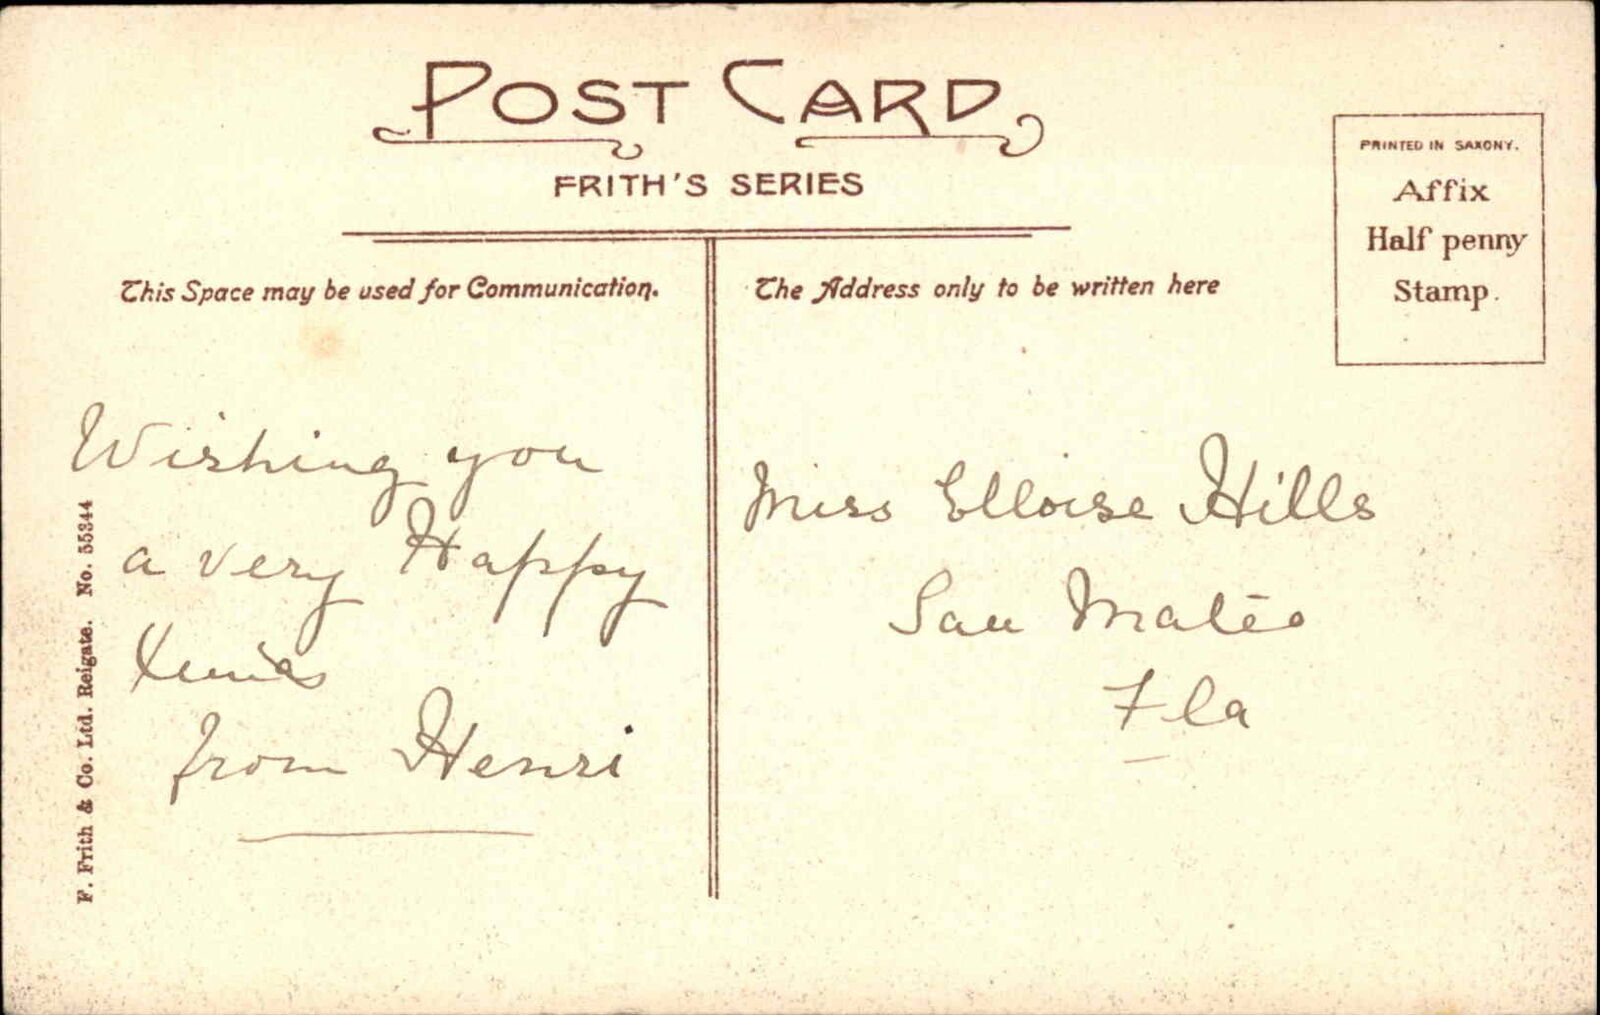 POST CARD
FRITH'S SERIES
PRINTED IN SAXONY.
Affix
Half penny
Stamp.
This Space may be used for Communication.
The Address only to be written here
Wishing you
a very Happy
Xmas
from Henri
Miss Elloise Hills
San Mateo
Fla
F. Frith & Co. Ltd. Reigate. No. 55344